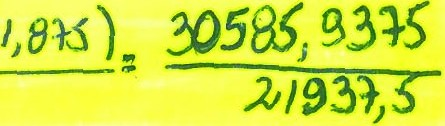 1,875) = 30585,9375
21937,5